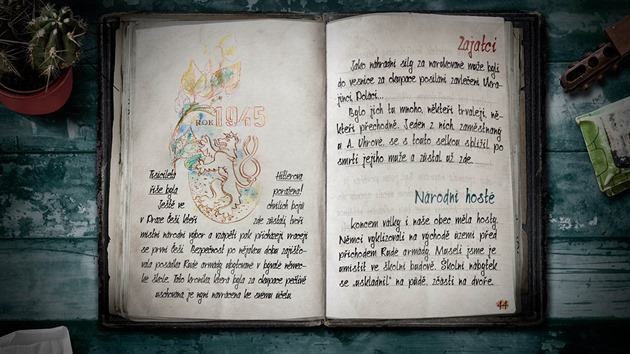 ROK 1945
Tisíciletá Hitlerova
říše byla poražena!
Ještě ve chvílích bojů
v Praze Češi kteří zde zůstali, tvoří
místní národní výbor a vzápětí pak přicházejí vracejí
se první Češi. Bezpečnost po nějakou dobu zajišťo-
vala posádka Rudé armády ubytované v bývalé němec-
ké škole. Tato kronika která byla za okupace pečlivě
uschována je nyní navrácena ke svému účelu.
Zajatci
Jako náhradní síly za narukované muže byli
do vesnice za okupace posíláni zavlečení Ukra-
jinci, Poláci...
Bylo jich tu mnoho, někteří trvaleji, ně-
kteří přechodně. Jeden z nich zaměstnaný
u A. Uhrové, se s touto selkou sblížil po
smrti jejího muže a zůstal už zde.
Národní hosté
...koncem války i naše obec měla hosty.
Němci vyklizovali na východě území před
příchodem Rudé armády. Museli jsme je
umístit ve školní budově. Školní nábytek
se „uskladnil" na půdě, zčásti na dvoře.
44